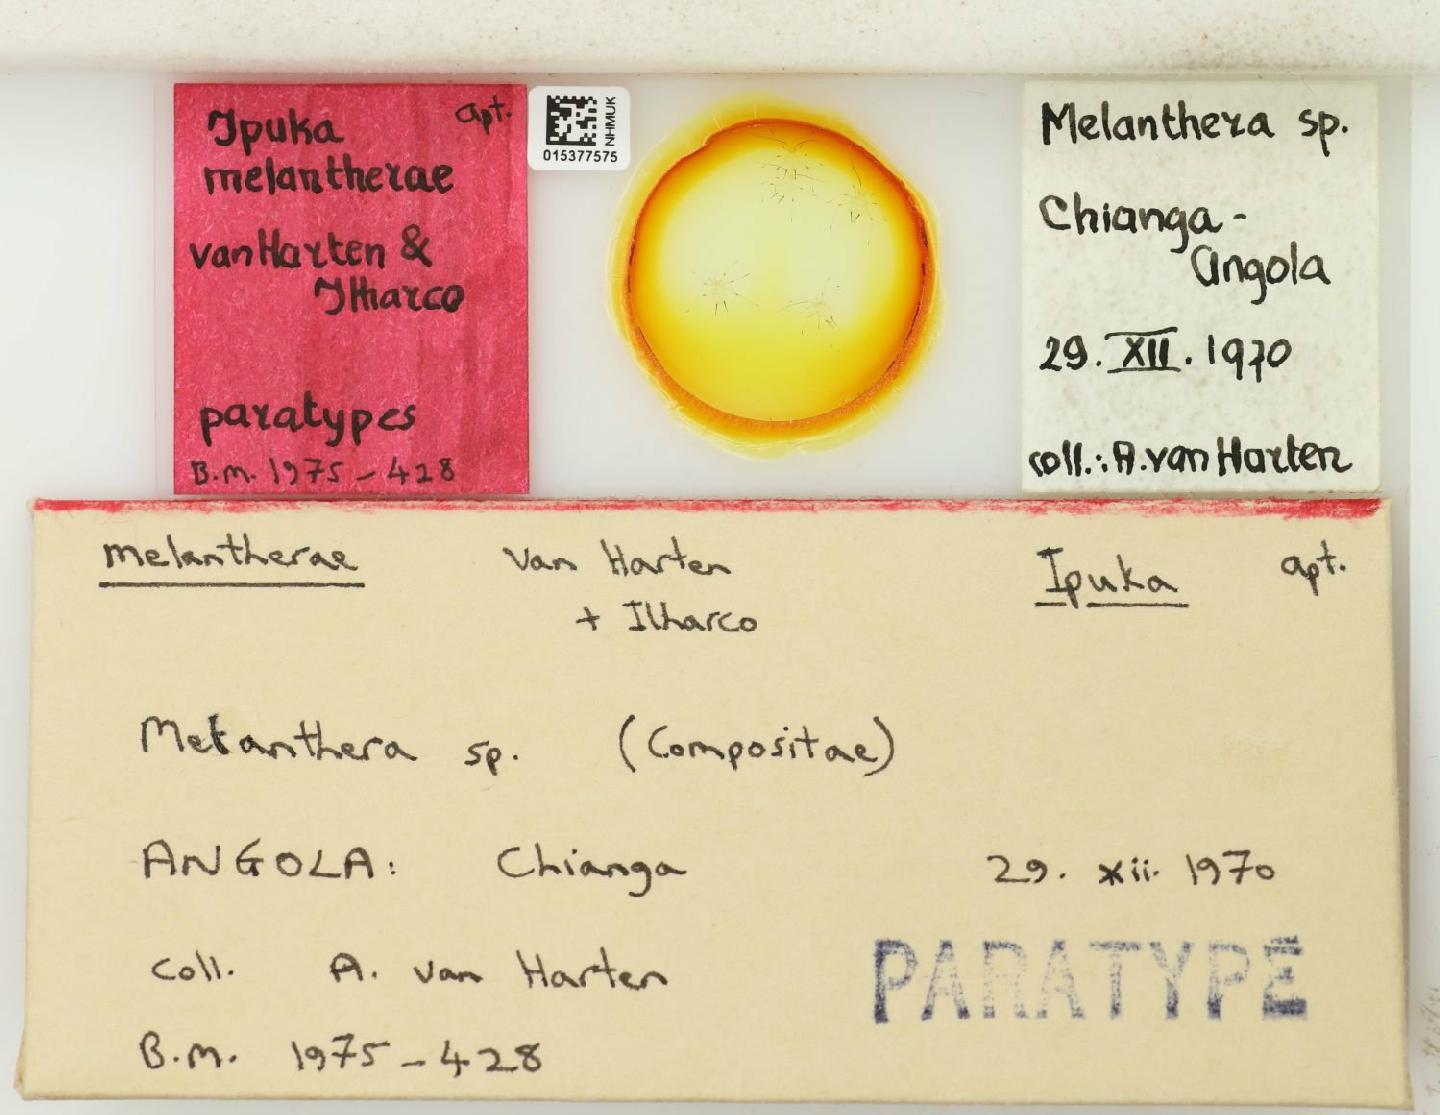 Ipuka apt.
melantherae
van Harten &
Ilharco
paratypes
B.M. 1975-428
NHMUK
015377575
Melanthera sp.
Chianga-
Angola
29. XII. 1970
coll.: A. van Harten
melantherae van Harten Ipuka apt.
+ Ilharco
Melanthera sp. (Compositae)
ANGOLA: Chianga 29. xii. 1970
coll. A. van Harten
PARATYPE
B.M. 1975-428